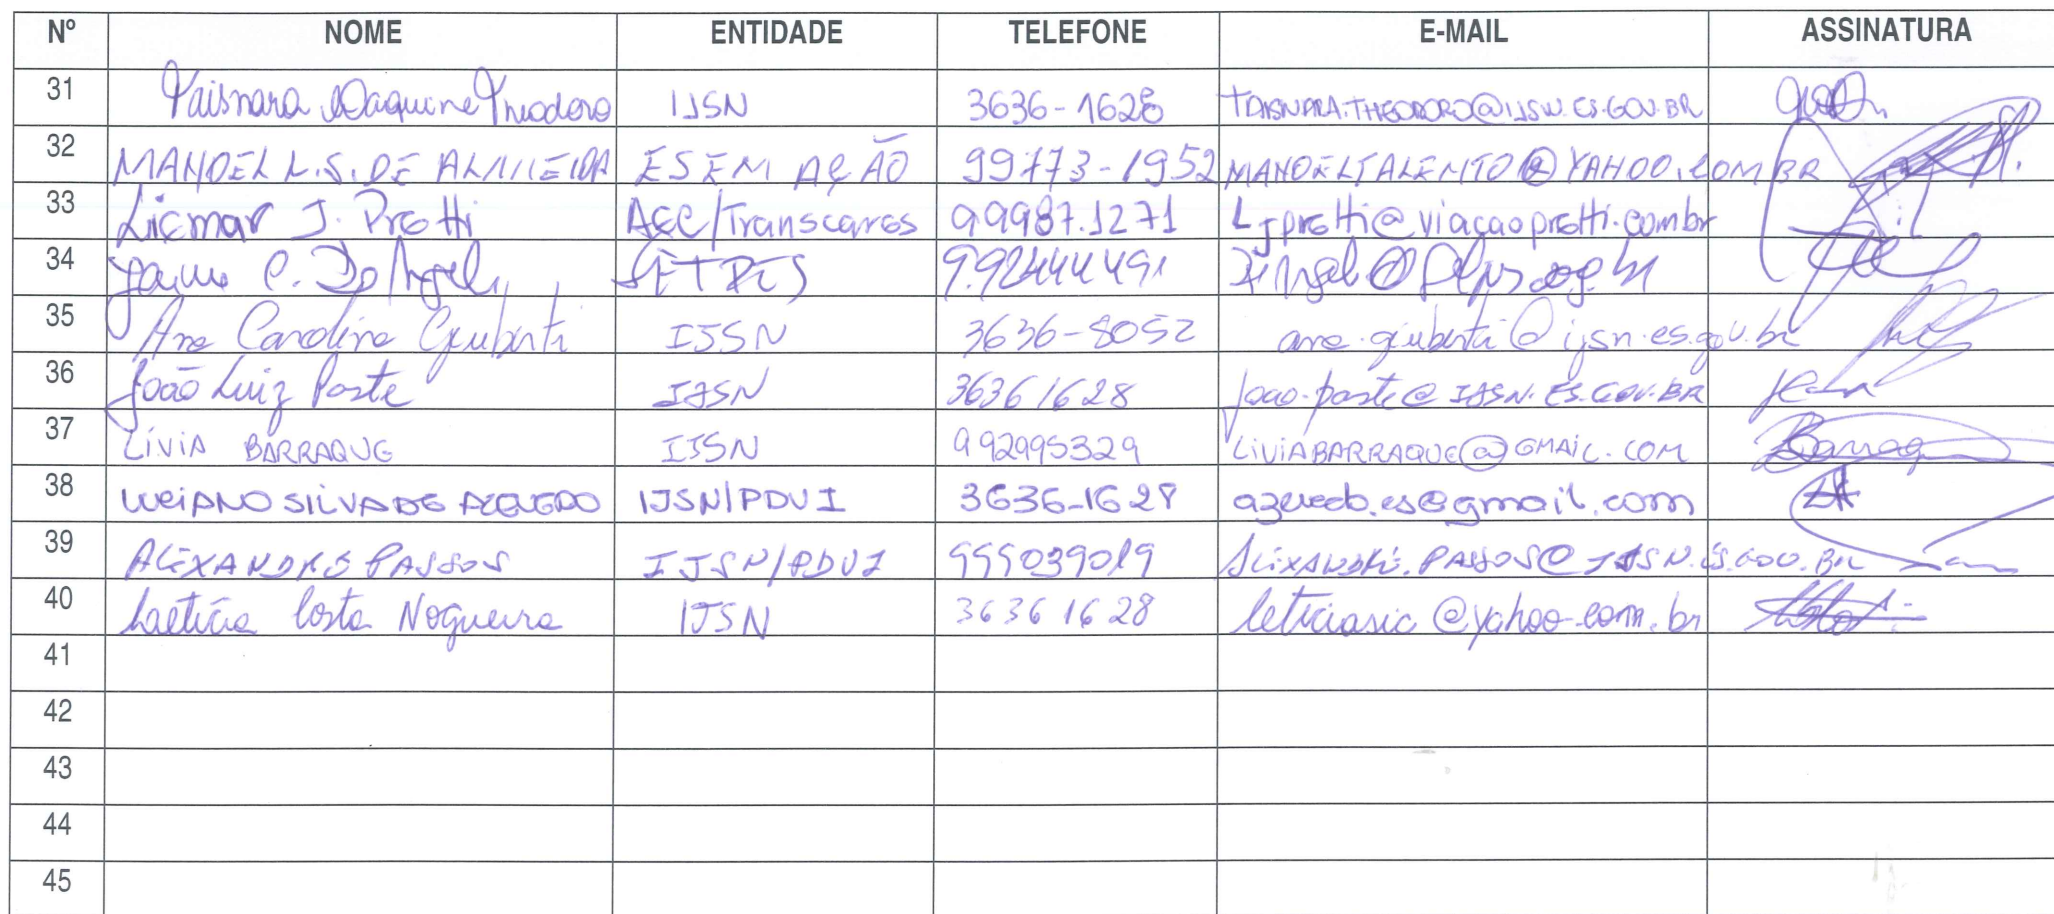 Nº NOME ENTIDADE TELEFONE E-MAIL ASSINATURA
31 Taisnara Theodoro IJSN 3636-1628 TAISNARA.THEODORO@IJSN.ES.GOV.BR
32 MANOEL L.S. DE ALMEIDA ES EM AÇÃO 99773-1952 MANOELTALENTO@YAHOO.COM BR
33 Licmar J. Protti 99987.1271 Ljprotti@viaçaoprotti.combr
34 C. De Angeli
35 Ana Carolina Giuberti IJSN 3636-8052 ana.giuberti@ijsn.es.gov.br
36 João Luiz Paste IJSN 3636 1628 Joao.paste@IJSN.ES.GOV.BR
37 LÍVIA BARRAQUE IJSN 992995329 LIVIABARRAQUE@GMAIL.COM Barraq
38 LUCIANO SILVA DE AZEVEDO IJSN/PDUI 3636-1628 azevedo.es@gmail.com
39 ALEXANDRE PASSOS IJSN/PDUI 999039019 ALEXANDRE.PASSOS@IJSN.ES.GOV.BR
40 Laeticia Costa Nogueira IJSN 3636 1628 leticiasic@yahoo.com.br
41
42
43
44
45